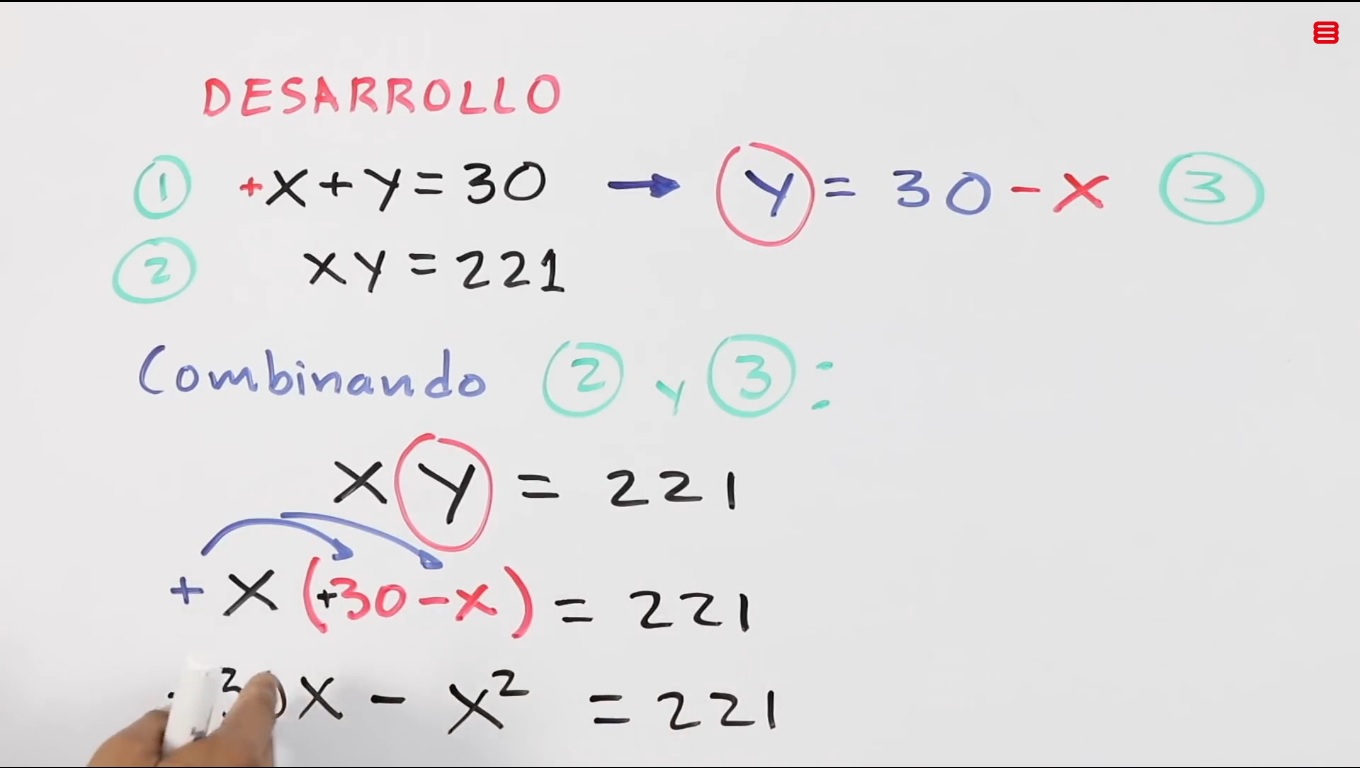 DESARROLLO
1 +x+y=30 → y = 30-x 3
2 xy=221
Combinando 2 y 3:
xy = 221
+x(+30-x) = 221
30x - x² = 221